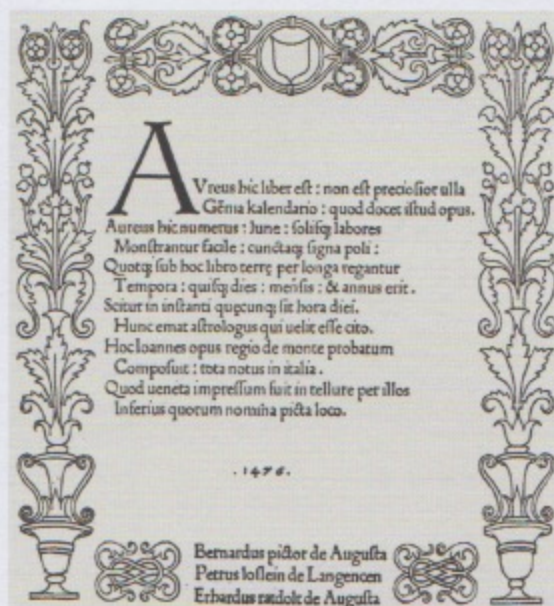 AVreus hic liber est : non est preciosior ulla
Gēma kalendario : quod docet istud opus.
Aureus hic numerus : lune : solisq; labores
Monstrantur facile : cunctaq; signa poli :
Quotq; sub hoc libro terrę per longa regantur
Tempora : quisq; dies : mensis : & annus erit .
Scitur in instanti quęcunq; sit hora diei.
Hunc emat astrologus qui uelit esse cito.
Hoc Ioannes opus regio de monte probatum
Composuit : tota notus in italia .
Quod ueneta impressum fuit in tellure per illos
Inferius quorum nomina picta loco.
. 1476 .
Bernardus pictor de Augusta
Petrus loslein de Langencen
Erhardus ratdolt de Augusta